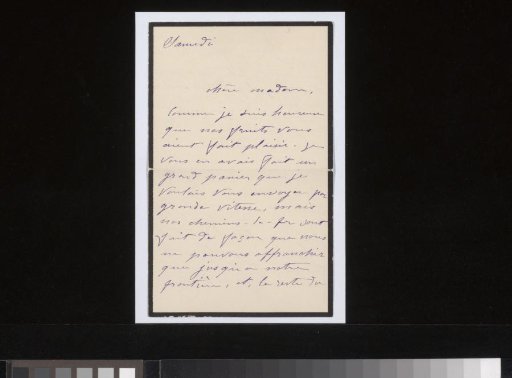 Samedi
Chère madame,
Comme je suis heureuse
que nos fruits vous
aient fait plaisir. Je
vous en avais fait un
grand panier que je
voulais vous envoyer par
grande vitesse, mais
nos chemins-de-fer sont
fait de façon que nous
ne pouvons affranchir
que jusqu'a notre
frontière, et, le reste du